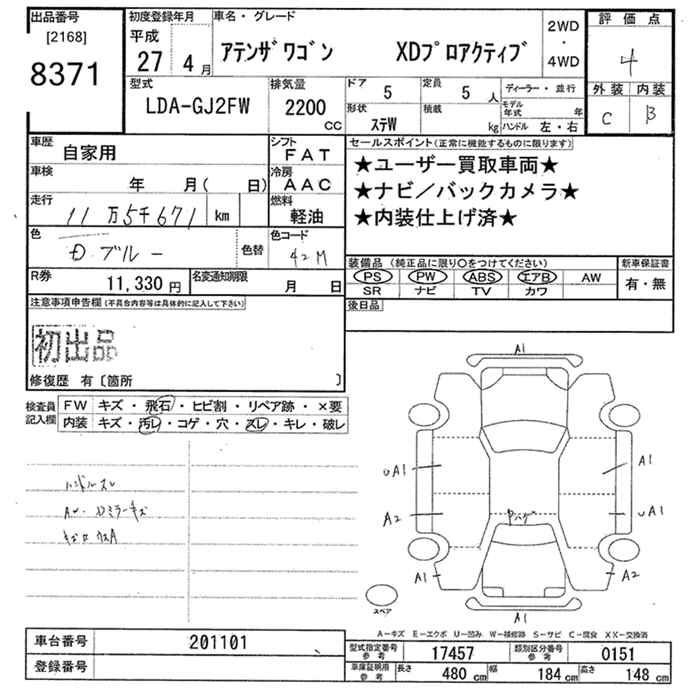 出品番号 初度登録年月 車名・グレード 2WD 評価点
[2168] 平成 ・
8371 27年 4月 アテンザワゴン XDプロアクティブ 4WD 4
型式 排気量 ドア 5 定員 5人 ディーラー・並行 外装 内装
LDA-GJ2FW 2200 CC 形状 ステW 積載 kg モデル年式 年 C B
ハンドル 左・右
車歴 自家用 シフト FAT セールスポイント(正常に機能するものに限ります)
車検 年 月( 日) 冷房 AAC ★ユーザー買取車両★
走行 11万5千671 km 燃料 軽油 ★ナビ/バックカメラ★
★内装仕上げ済★
色 ブルー 色替 色コード 42M
装備品 (純正品に限り○をつけてください) 新車保証書
R券 11,330円 名変通知期限 月 日 PS PW ABS エアB AW 有・無
SR ナビ TV カワ
注意事項申告欄(不具合内容等は具体的に記入して下さい) 後日品
初出品
修復歴 有〔箇所 〕
検査員 FW キズ・飛石・ヒビ割・リペア跡・×要
記入欄 内装 キズ・汚レ・コゲ・穴・スレ・キレ・破レ
A1
ハンドルスレ
UA1 A1
A2 UA1
A1 A2
スペア A1
A-キズ E-エクボ U-凹み W-補修跡 S-サビ C-腐食 XX-交換済
車台番号 201101 型式指定番号 参考 17457 類別区分番号 参考 0151
登録番号 車庫証明用 参考 長さ 480cm 幅 184cm 高さ 148cm